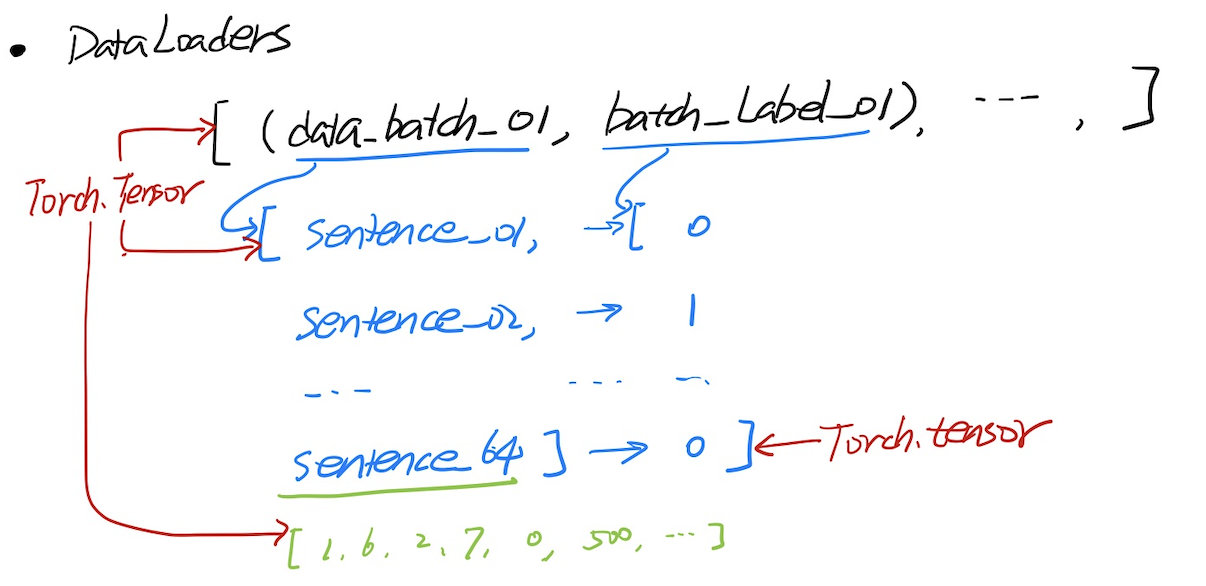 • DataLoaders
[ (data_batch_01, batch_Label_01), --- , ]
Torch.Tensor
[ sentence_01, → [ 0
sentence_02, → 1
--- --- ---
sentence_64 ] → 0 ] ← Torch.tensor
[ 1, 6, 2, 7, 0, 500, --- ]